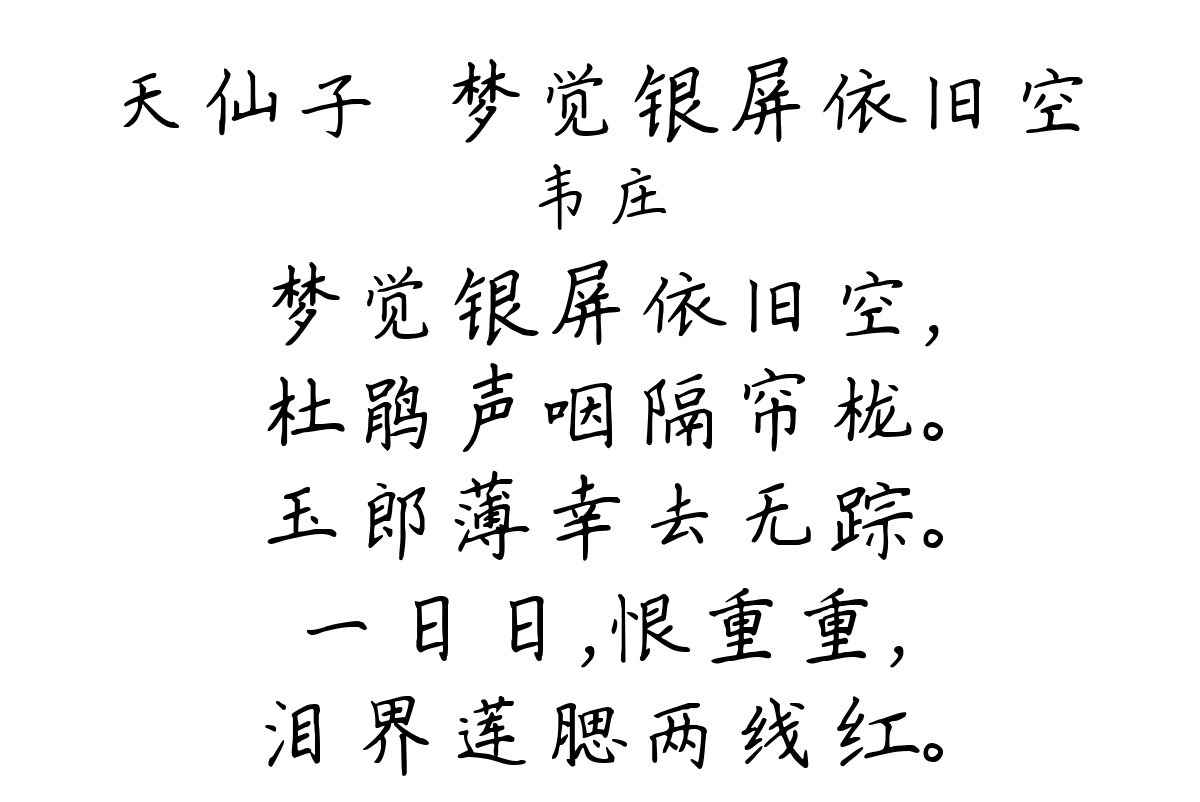 天仙子 梦觉银屏依旧空
韦庄
梦觉银屏依旧空,
杜鹃声咽隔帘栊。
玉郎薄幸去无踪。
一日日,恨重重,
泪界莲腮两线红。